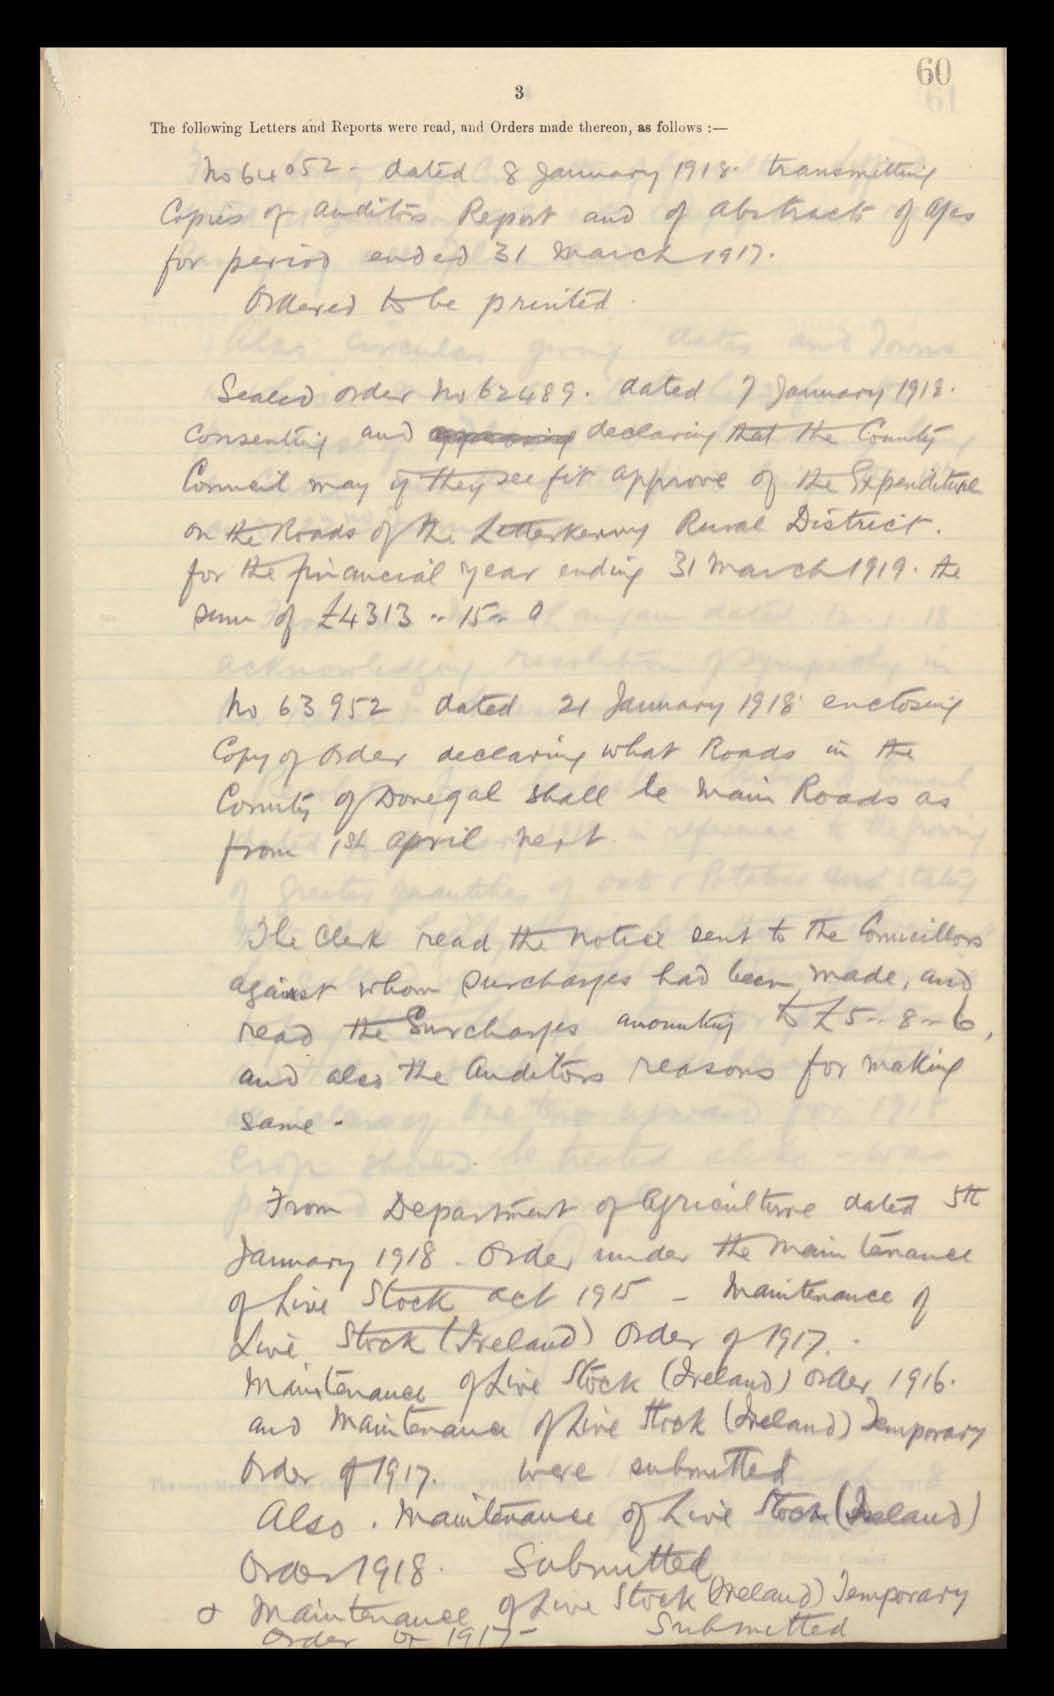 60
3
The following Letters and Reports were read, and Orders made thereon, as follows :—
No 64052 - dated 8 January 1918. transmitting
Copies of Auditors Report and of abstracts of a/cs
for period ended 31 March 1917.
Ordered to be printed.
Sealed order No 62489. dated 7 January 1918.
consenting and declaring that the County
Council may if they see fit approve of the Expenditure
on the Roads of the Letterkenny Rural District.
for the financial year ending 31 March 1919. the
sum of £4313 " 15 " 0
No 63952 dated 21 January 1918 enclosing
Copy of Order declaring what Roads in the
County of Donegal shall be Main Roads as
from 1st April next
The Clerk read the notice sent to the Councillors
against whom Surcharges had been made, and
read the Surcharges amounting to £5 " 8 " 6,
and also the Auditors reasons for making
same -
From Department of Agriculture dated 5th
January 1918. Order under the Maintenance
of Live Stock Act 1915 - Maintenance of
Live Stock (Ireland) Order of 1917.
Maintenance of Live Stock (Ireland) Order 1916.
and Maintenance of Live Stock (Ireland) Temporary
Order of 1917. were submitted
Also. Maintenance of Live Stock (Ireland)
Order 1918. Submitted
& Maintenance of Live Stock (Ireland) Temporary
Order of 1917 - Submitted